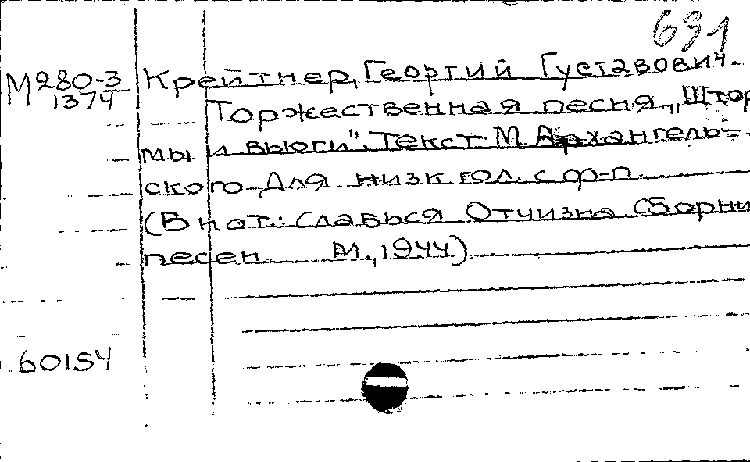 691
М280-3 Крейтнер, Георгий Густавович.
1374 Торжественная песня „Штор
мы и вьюги". Текст М. Архангель-
ского. Для низк. гол. с ф-п.
(В нот.: Славься Отчизна. Сборни
песен. М., 1944.)
60154